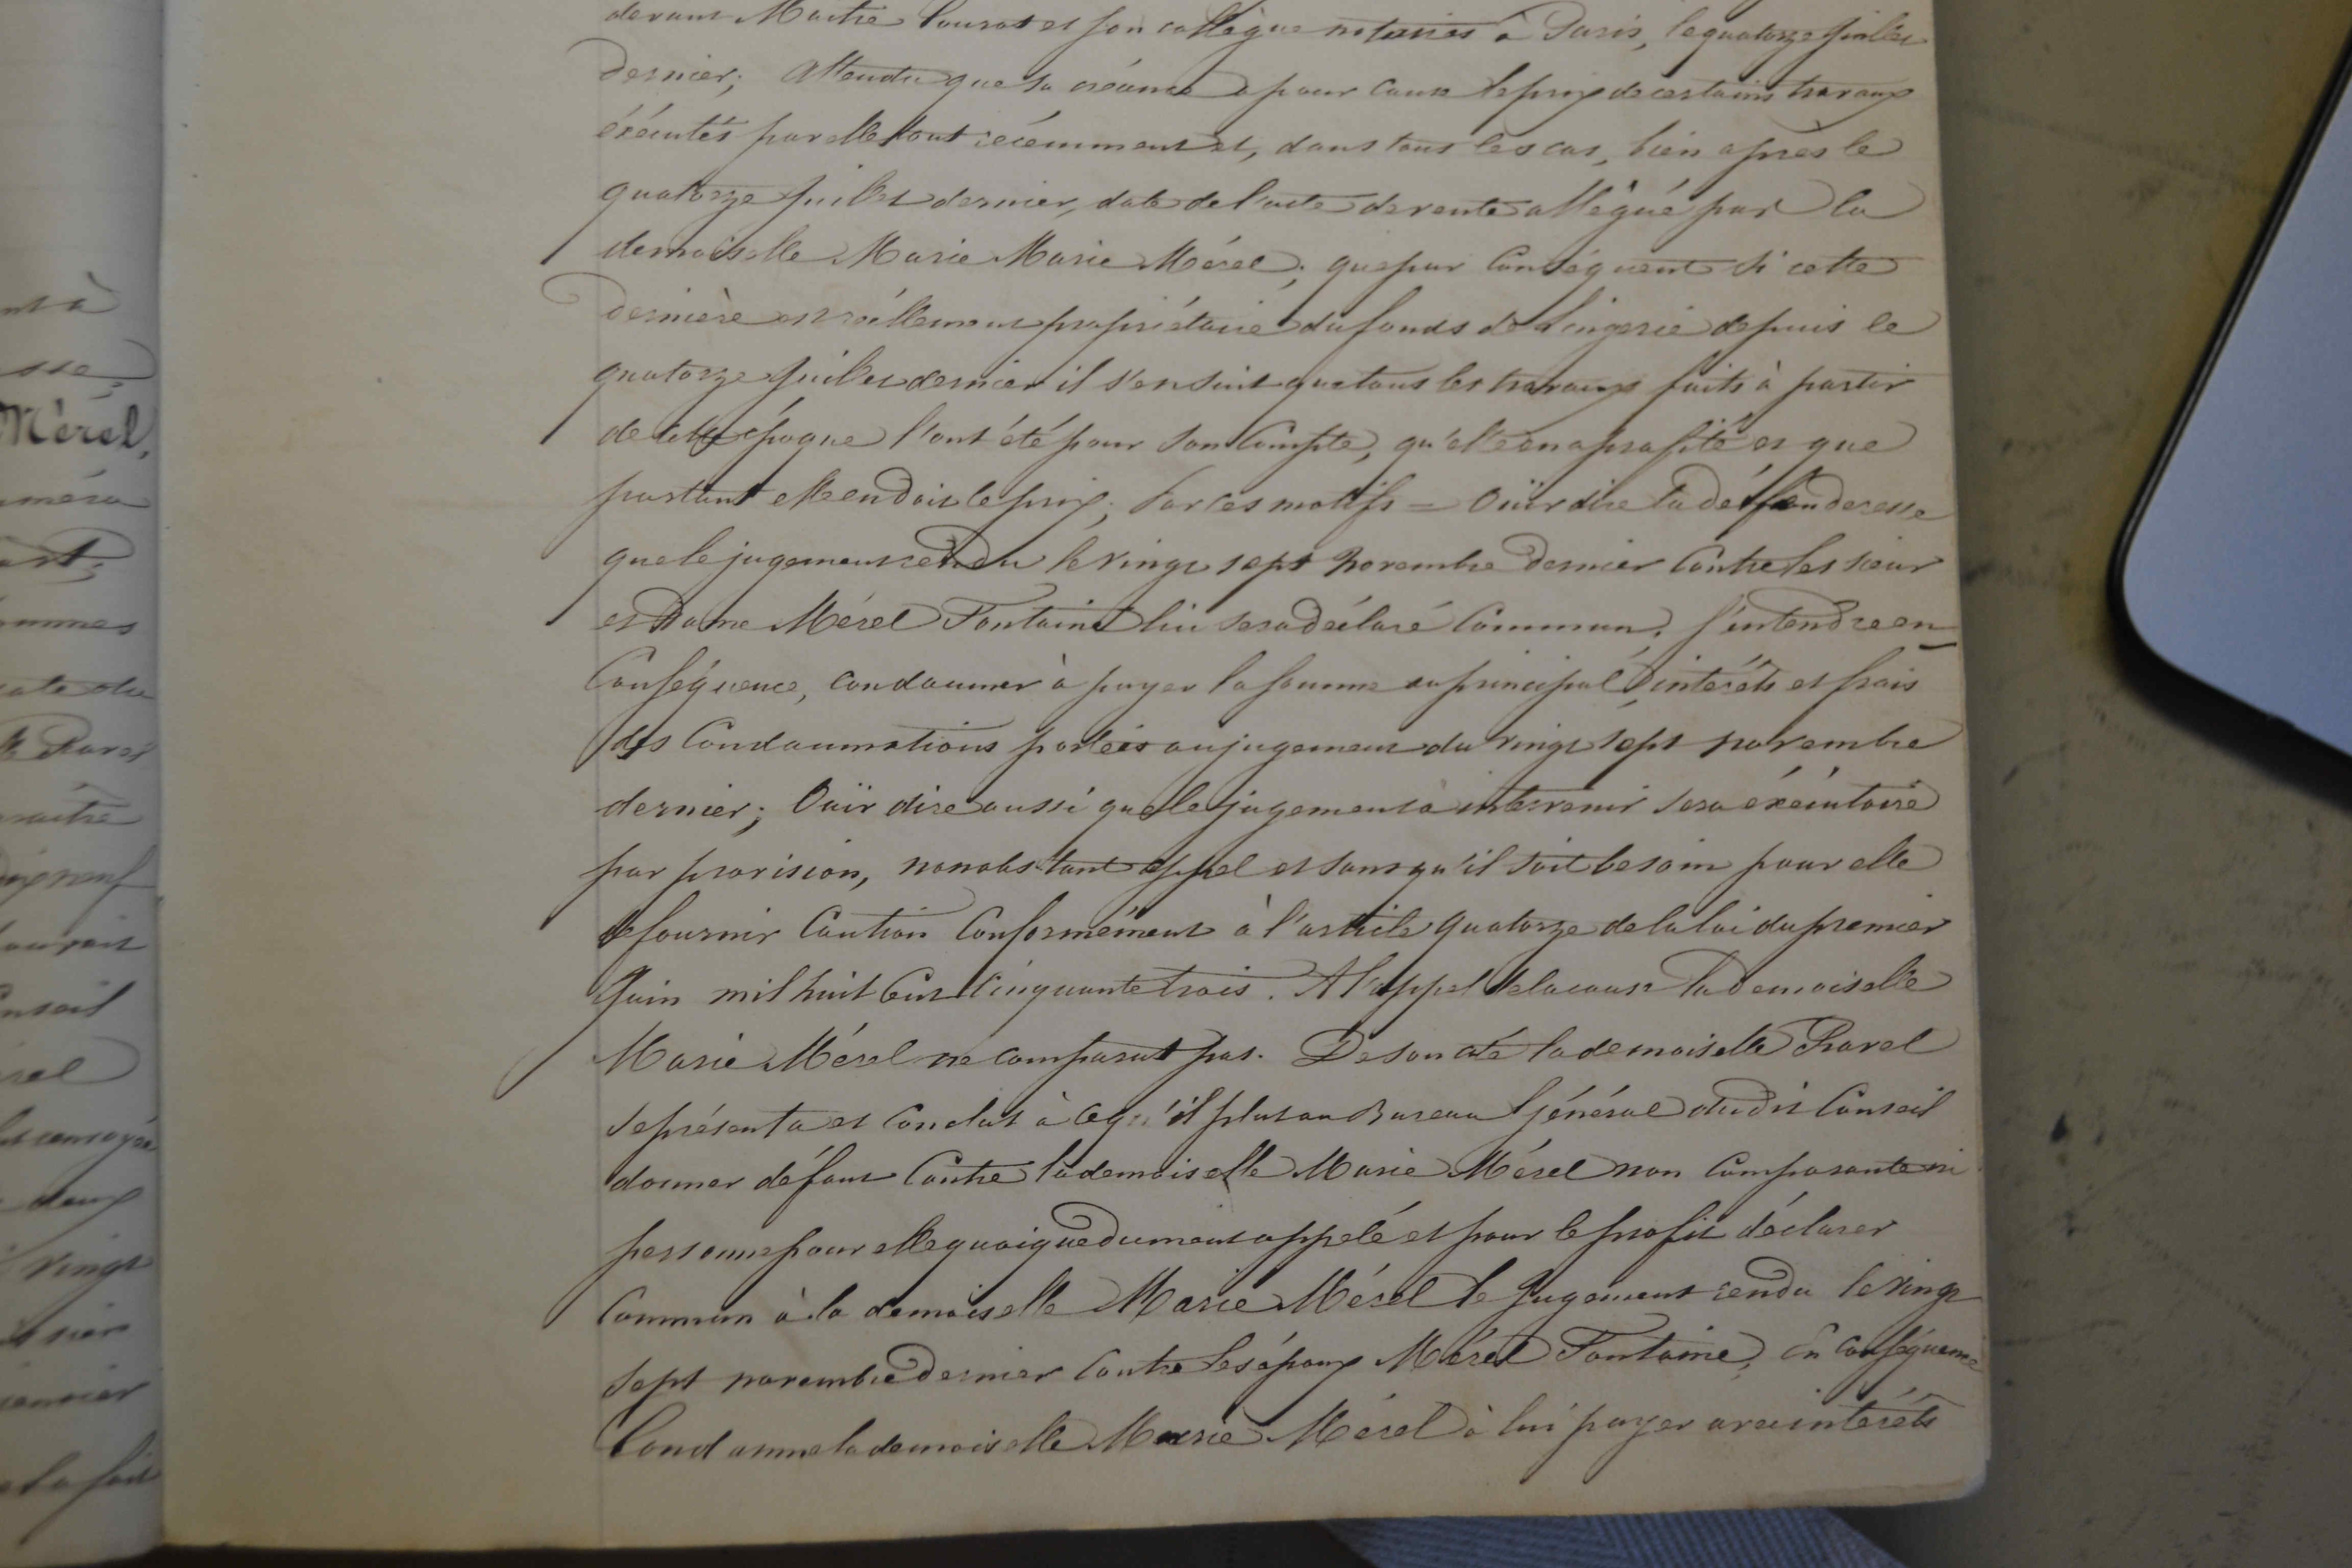 devant Maitre et son collègue notaires à Paris, le quatorze juillet
dernier; Attendu que sa créance a pour cause le prix de certains travaux
éxécutés par elle tout récemment et, dans tous les cas, bien après le
quatorze juillet dernier, date de l'acte de vente allégué par la
demoiselle Marie Marie Mérel; que par conséquent si cette
dernière est réellement propriétaire du fonds de Lingerie depuis le
quatorze juillet dernier il s'en suit que tous les travaux faits à partir
de cette époque l'ont été pour son Compte, qu'elle en a profité et que
partant elle en doit le prix; Par ces motifs = Ouïr dire la défenderesse
que le jugement rendu le vingt sept novembre dernier Contre les sieur
et Dame Mérel Fontaine lui sera déclaré Commun, S'entendre en
Conséquence, condamner à payer la somme au principal, intérêts et frais
des Condamnations portées au jugement du vingt sept novembre
dernier; Ouïr dire aussi que le jugement à intervenir sera éxécutoire
par provision, nonobstant appel et sans qu'il soit besoin pour elle
de fournir Caution Conformément à l'article quatorze de la loi du premier
Juin mil huit Cent Cinquante trois. A l'appel de la cause la Demoiselle
Marie Mérel ne comparut pas. De son côté la demoiselle Ravel
se présenta et Conclut à ce qu'il plut au Bureau Général dudit Conseil
donner défaut Contre la demoiselle Marie Mérel non Comparante ni
personne pour elle quoique dument appelé et pour le profit déclarer
Commun à la demoiselle Marie Mérel le Jugement rendu le vingt
sept novembre dernier Contre les époux Mérel Fontaine, En Conséquence
Condamne la demoiselle Marie Mérel à lui payer avec intérêts
nt à
sse,
Mérel,
Ravel
vingt
janvier